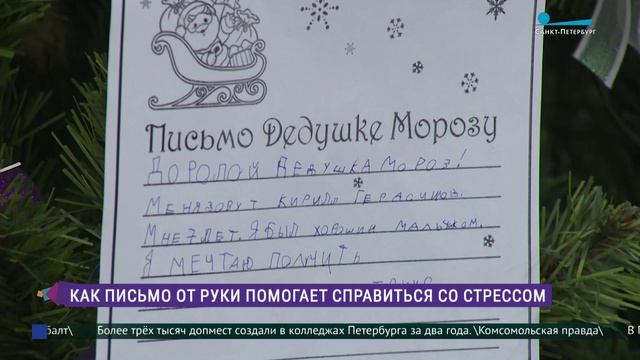 САНКТ-ПЕТЕРБУРГ
Письмо Дедушке Морозу
ДОРОГОЙ ДЕДУШКА МОРОЗ!
МЕНЯ ЗОВУТ КИРИЛЛ ГЕРАСИМОВ.
МНЕ 7 ЛЕТ. Я БЫЛ ХОРОШИМ МАЛЬЧИКОМ.
Я МЕЧТАЮ ПОЛУЧИТЬ
КАК ПИСЬМО ОТ РУКИ ПОМОГАЕТ СПРАВИТЬСЯ СО СТРЕССОМ
балт\ Более трёх тысяч допмест создали в колледжах Петербурга за два года. \Комсомольская правда\ В